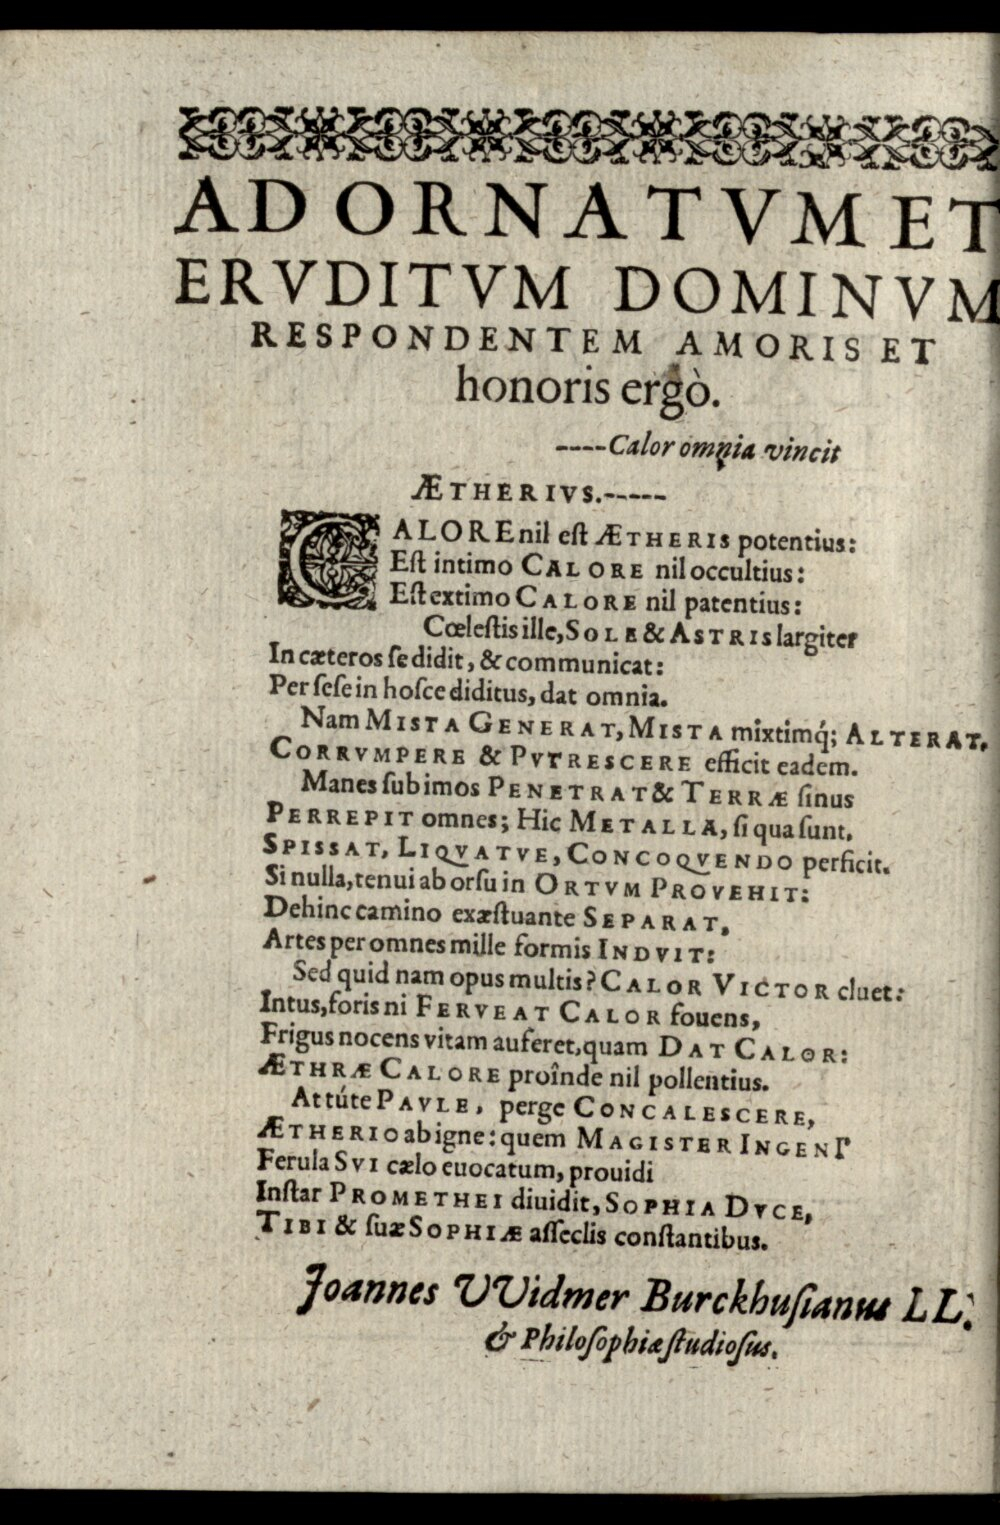 AD ORNATVM ET
ERVDITVM DOMINVM
RESPONDENTEM AMORIS ET
honoris ergò.
----Calor omnia vincit
ÆTHERIVS.-----
CALORE nil eſt ÆTHERIS potentius:
Eſt intimo CALORE nil occultius:
Eſt extimo CALORE nil patentius:
Cœleſtis ille, SOLE & ASTRIS largiter
In cæteros ſe didit, & communicat:
Per ſeſe in hoſce diditus, dat omnia.
Nam MISTA GENERAT, MISTA mixtimq́; ALTERAT,
CORRVMPERE & PVTRESCERE efficit eadem.
Manes ſub imos PENETRAT & TERRÆ ſinus
PERREPIT omnes; Hic METALLA, ſi qua ſunt.
SPISSAT, LIQVATVE, CONCOQVENDO perficit.
Si nulla, tenui ab orſu in ORTVM PROVEHIT:
Dehinc camino exæſtuante SEPARAT,
Artes per omnes mille formis INDVIT:
Sed quid nam opus multis? CALOR VICTOR cluet:
Intus, foris ni FERVEAT CALOR fouens,
Frigus nocens vitam auferet, quam DAT CALOR:
ÆTHRÆ CALORE proînde nil pollentius.
At túte PAVLE, perge CONCALESCERE,
ÆTHERIO ab igne: quem MAGISTER INGENI
Ferula SVI cælo euocatum, prouidi
Inſtar PROMETHEI diuidit, SOPHIA DVCE,
TIBI & ſuæ SOPHIÆ aſſeclis conſtantibus.
Joannes VVidmer Burckhuſianus LL.
& Philoſophiæ ſtudioſus.